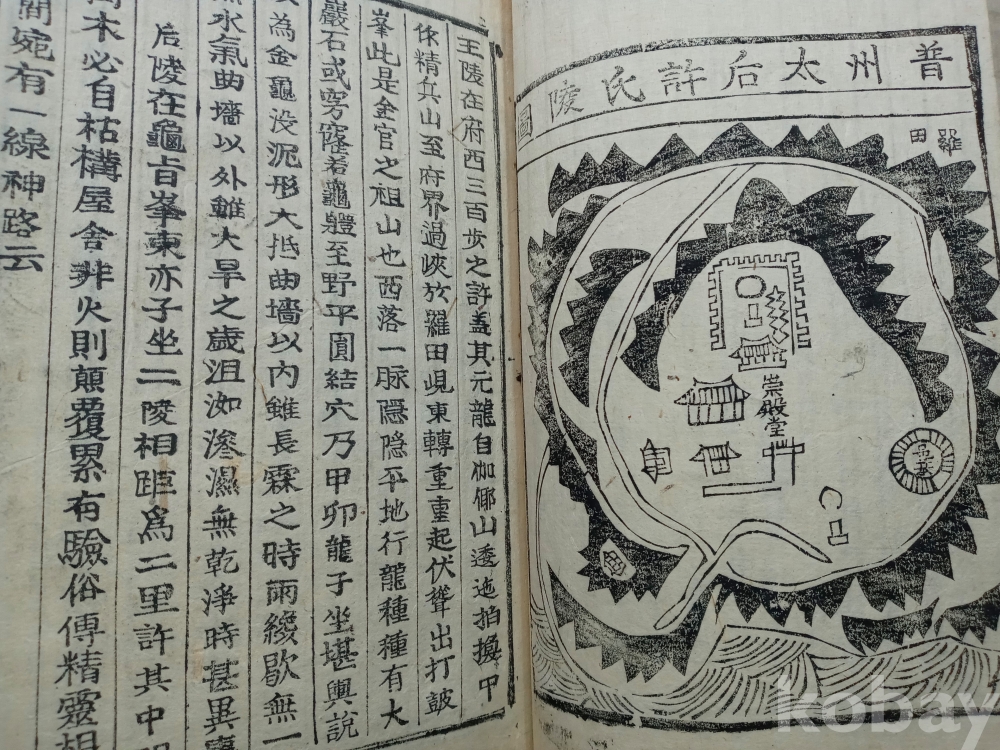 普州太后許氏陵圖
羅田
崇殿堂
王陵在府西三百步之許盖其元龍自伽倻山透迤拍換中
作精其山至府界過峽於羅田峴東轉重重起伏聳出打鼓
峯此是金官之祖山也西落一脉隱隱平地行龍種種有大
巖石或穷窿若龜軆至野平圓結穴乃甲卯龍子坐堪輿說
為金龜没泥形大抵曲墻以内雖長霖之時雨纔歇無一
水氣曲墻以外雖大旱之歲沮洳滲濕無乾淨時甚異
后陵在龜旨峯東亦子坐二陵相距爲二里許其中
木必自枯構屋舍非火則顛覆累有驗俗傳精靈相
間宛有一線神路云
kobay